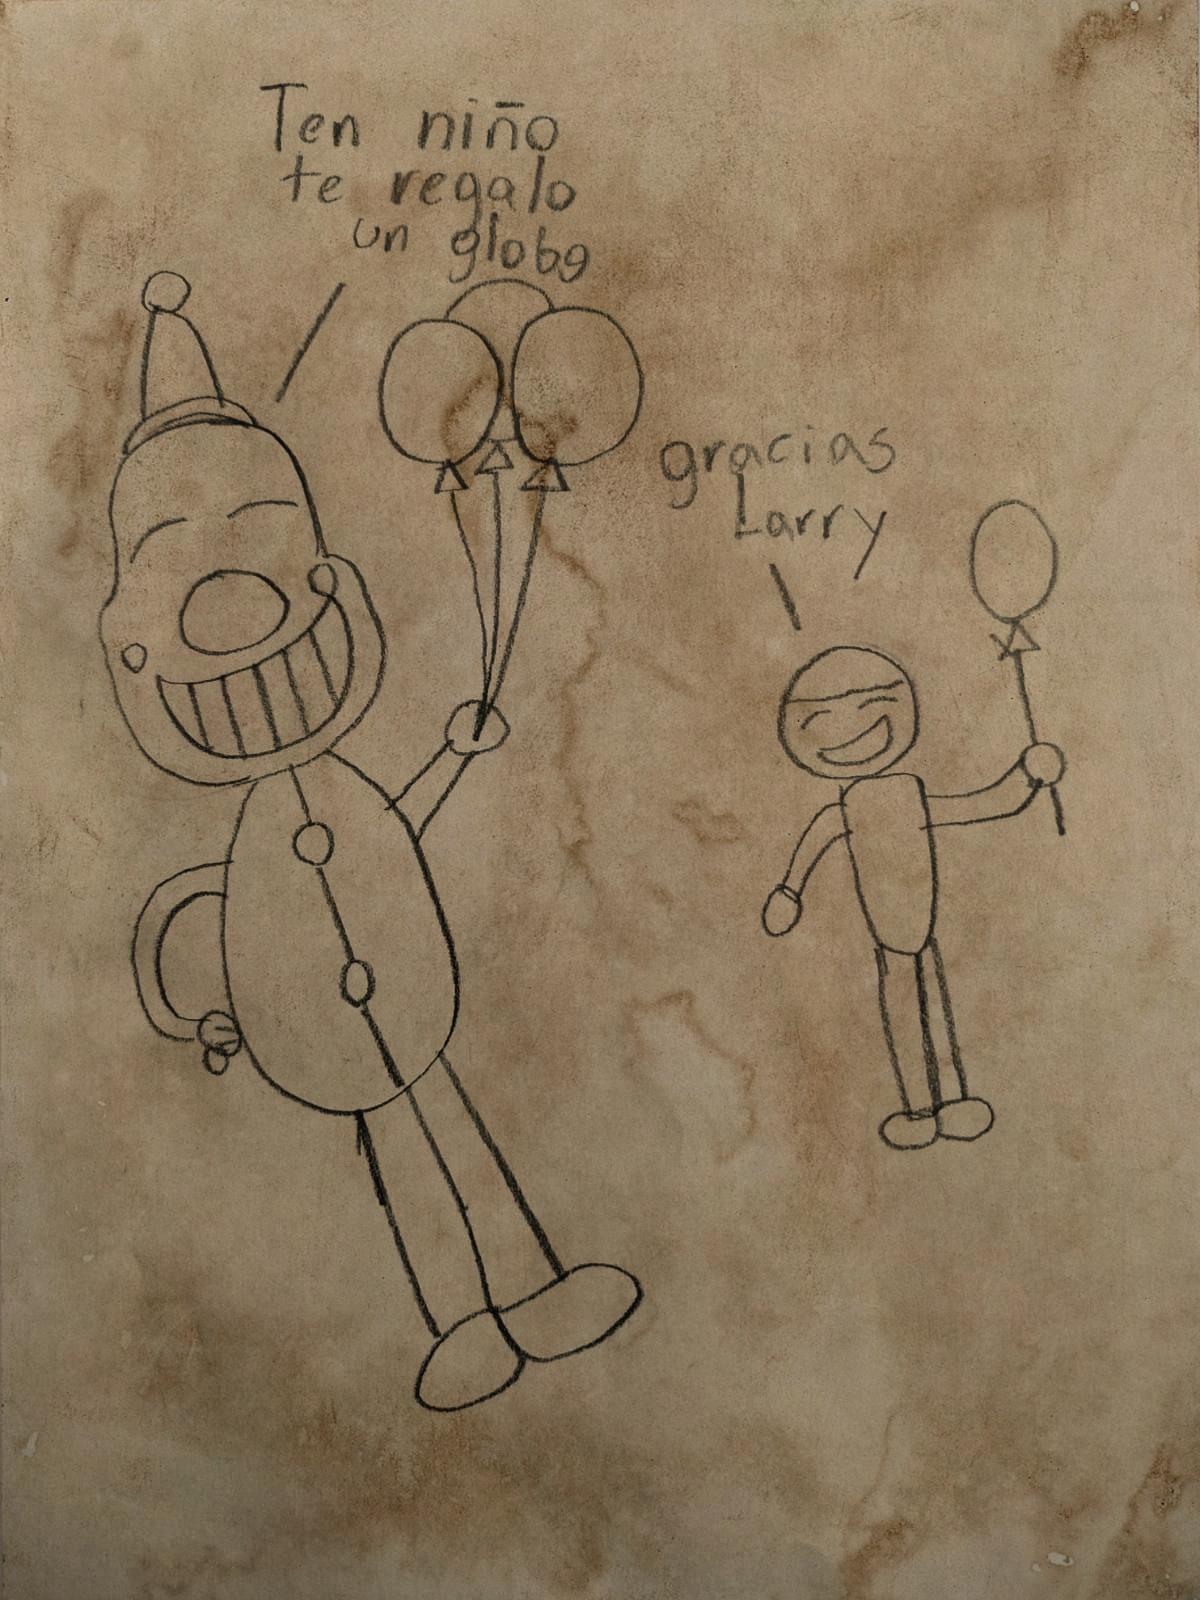 Ten niño
te regalo
un globo
gracias
Larry